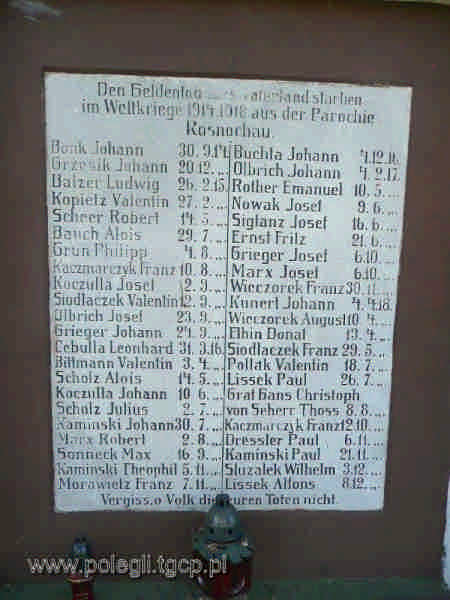 Den Heldentod fürs Vaterland starben
im Weltkriege 1914-1918 aus der Parochie
Rosnochau.
Bonk Johann 30. 9. 14.
Grzesik Johann 20. 12. „
Balzer Ludwig 26. 2. 15.
Kopietz Valentin 27. 2. „
Scheer Robert 14. 5. „
Bauch Alois 29. 7. „
Grün Philipp 4. 8. „
Kaczmarczyk Franz 10. 8. „
Koczulla Josef 2. 9. „
Siodlaczek Valentin 12. 9. „
Olbrich Josef 23. 9. „
Grieger Johann 24. 9. „
Cebulla Leonhard 31. 3. 16.
Bittmann Valentin 3. 4. „
Scholz Alois 14. 5. „
Koczulla Johann 10. 6. „
Scholz Julius 2. 7. „
Kaminski Johann 30. 7. „
Marx Robert 2. 8. „
Sonneck Max 16. 9. „
Kaminski Theophil 5. 11. „
Morawietz Franz 7. 11. „
Buchta Johann 4. 12. 16.
Olbrich Johann 4. 2. 17.
Rother Emanuel 10. 5. „
Nowak Josef 9. 6. „
Siglanz Josef 16. 6. „
Ernst Fritz 21. 6. „
Grieger Josef 6. 10. „
Marx Josef 6. 10. „
Wieczorek Franz 30. 11. „
Kunert Johann 4. 4. 18.
Wieczorek August 10. 4. „
Elhin Donat 13. 4. „
Siodlaczek Franz 29. 5. „
Pollak Valentin 18. 7. „
Lissek Paul 26. 7. „
Graf Hans Christoph
von Seherr Thoss 8. 8. „
Kaczmarczyk Franz 12. 10. „
Dressler Paul 6. 11. „
Kaminski Paul 21. 11. „
Sluzalek Wilhelm 3. 12. „
Lissek Alfons 8. 12. „
Vergiss, o Volk die teuren Toten nicht.
www.polegli.tgcp.pl